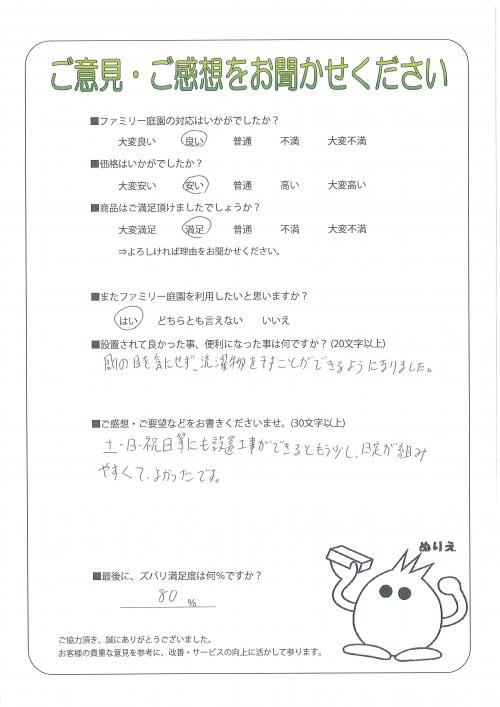 ご意見・ご感想をお聞かせください
■ファミリー庭園の対応はいかがでしたか？
大変良い 良い 普通 不満 大変不満
■価格はいかがでしたか？
大変安い 安い 普通 高い 大変高い
■商品はご満足頂けましたでしょうか？
大変満足 満足 普通 不満 大変不満
⇒よろしければ理由をお聞かせください。
■またファミリー庭園を利用したいと思いますか？
はい どちらとも言えない いいえ
■設置されて良かった事、便利になった事は何ですか？(20文字以上)
の目を気にせず、洗濯物を干すことができるようになりました。
■ご感想・ご要望などをお書きくださいませ。(30文字以上)
土・日・祝日等にも設置工事ができるともう少し、日定が組み
やすくて、よかったです。
ぬりえ
■最後に、ズバリ満足度は何%ですか？
80 %
ご協力頂き、誠にありがとうございました。
お客様の貴重な意見を参考に、改善・サービスの向上に活かして参ります。